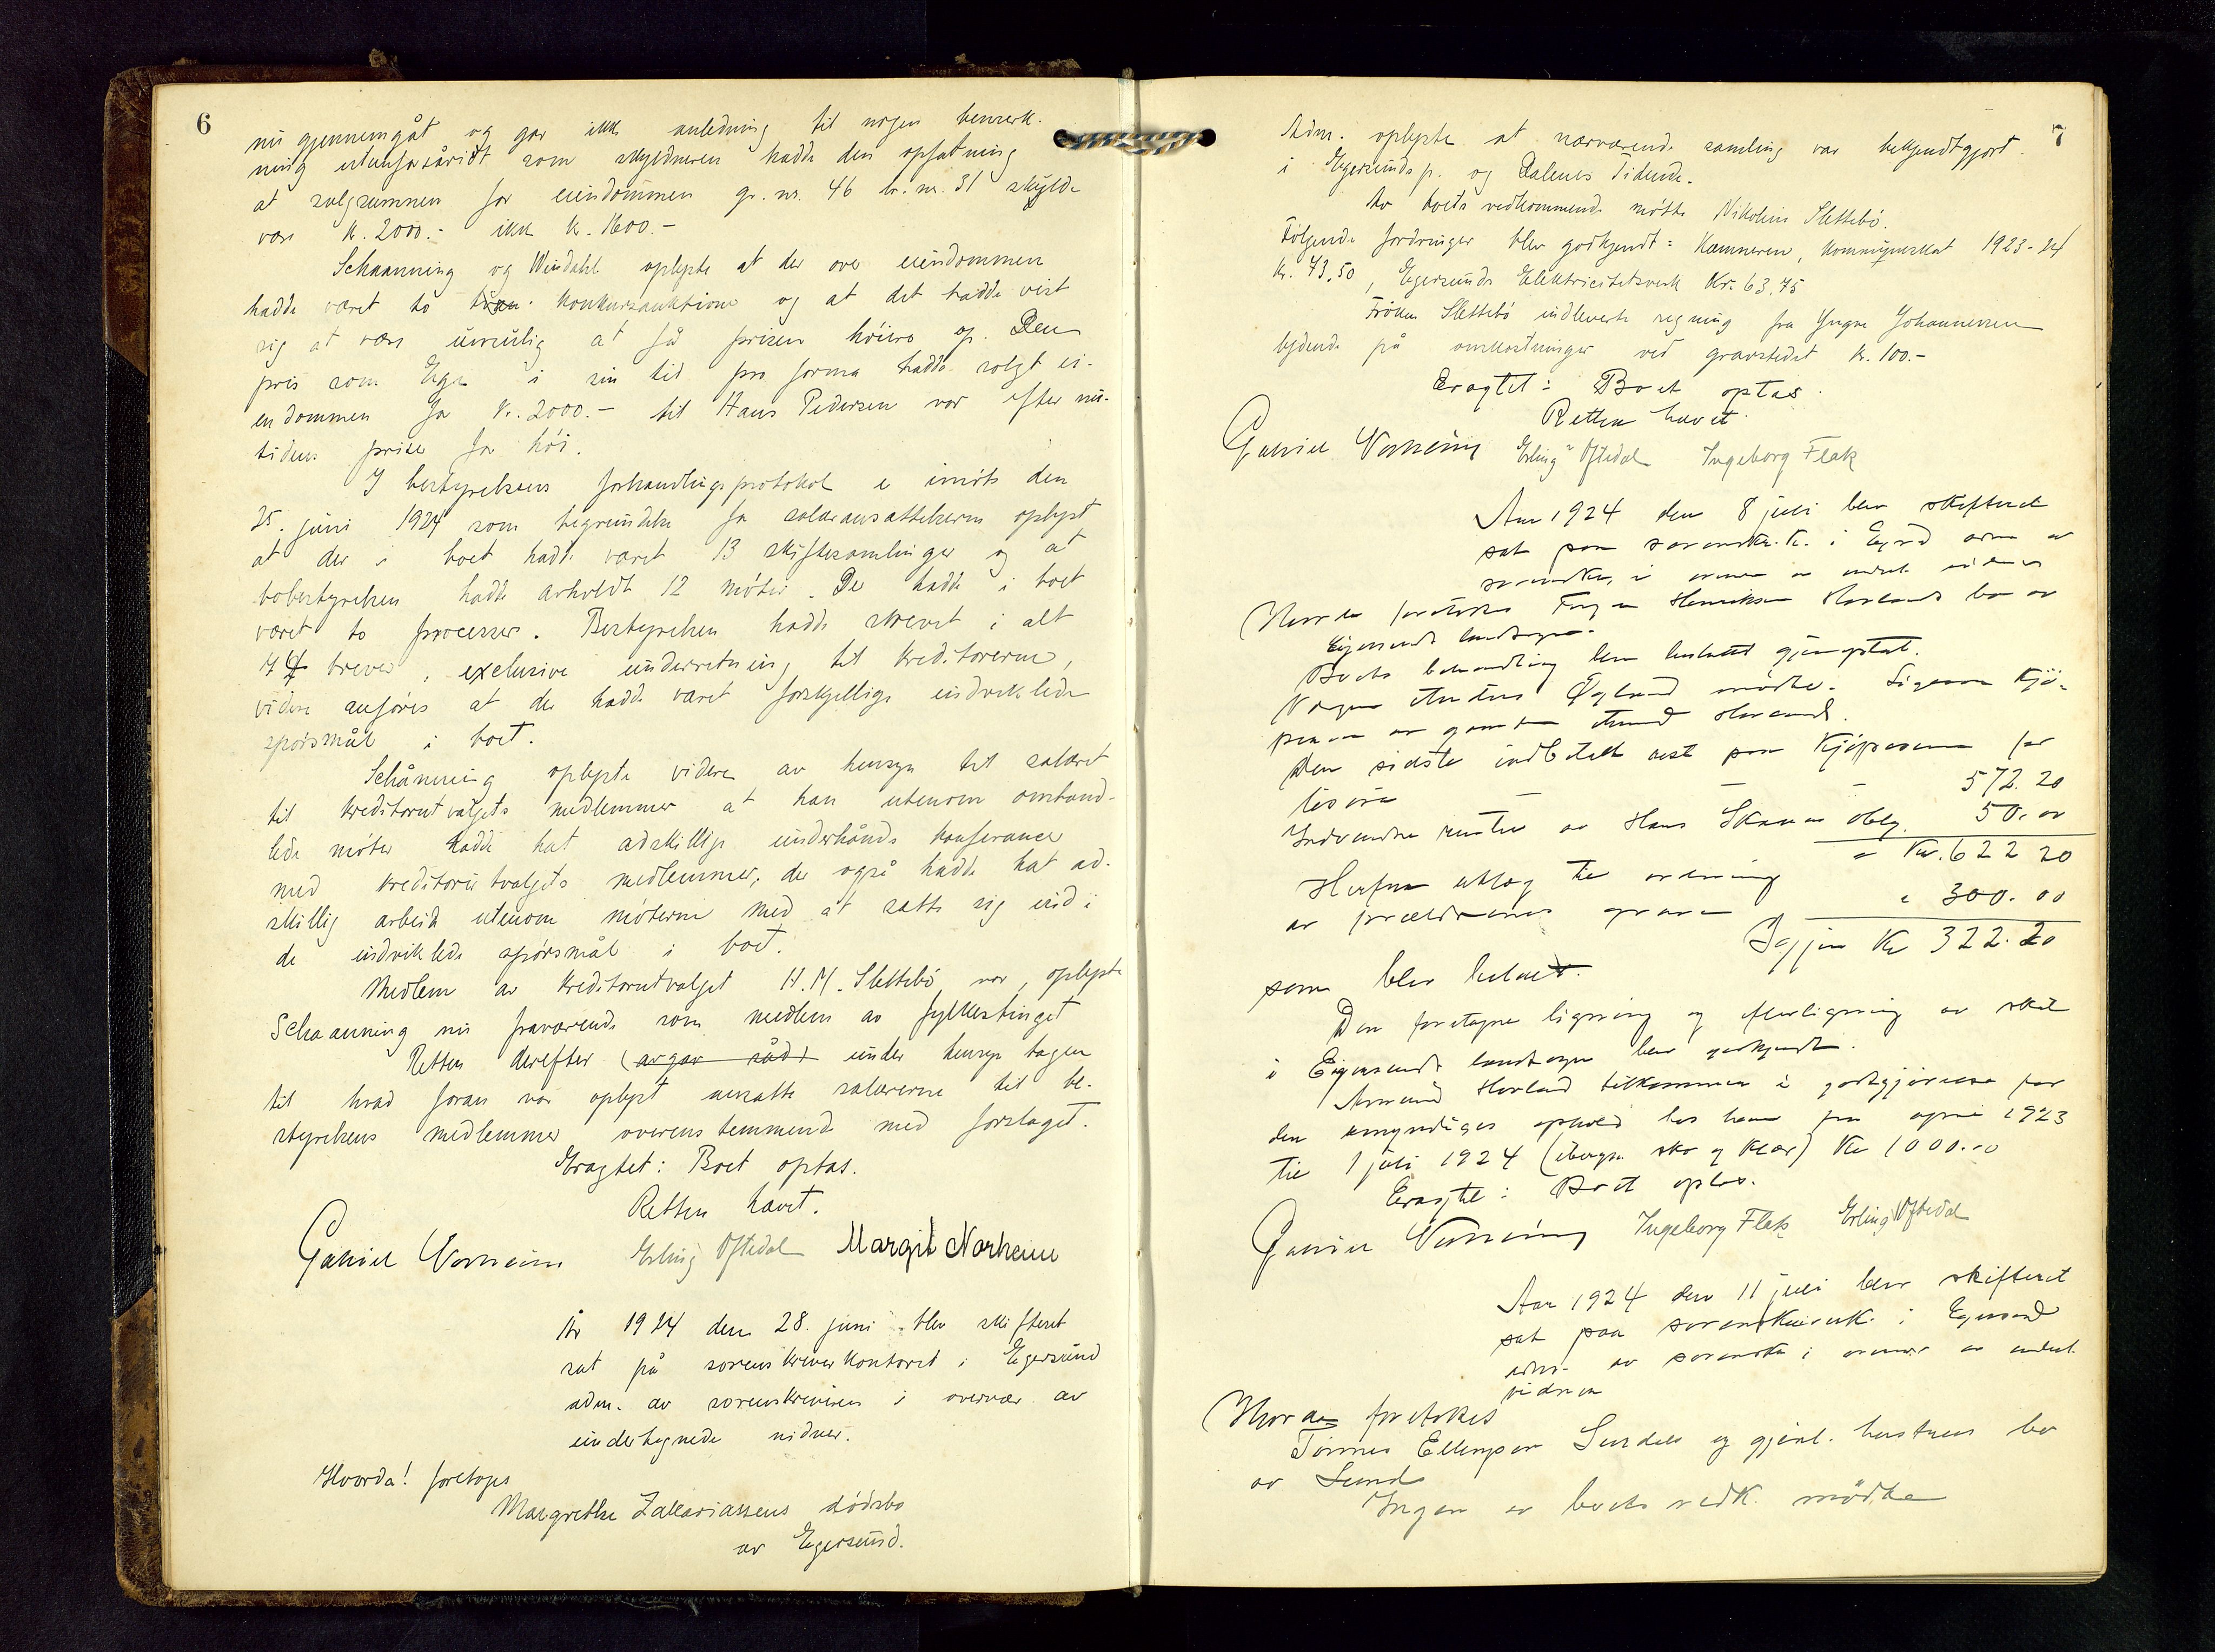 6
nu gjennemgåt og gav ikke anledning til nogen bemerk-
ning utenforsåvidt som skyldneren hadde den opfatning
at salgssummen for eiendommen gr. nr. 46 br. nr. 31 skulde
være kr. 2000.- ikke kr. 1600.-
Schaanning og Windahl oplyste at der over eiendommen
hadde været to konkursauktioner og at det hadde vist
sig at være umulig at få prisen höiere op. Den
pris som Ege i sin tid pro forma hadde solgt ei-
endommen for kr. 2000.- til Hans Pedersen var efter nu-
tidens priser for höi.
I bestyrelsens forhandlingsprotokol i möte den
25. juni 1924 som begrundelse for salæransættelserne oplyst
at der i boet hadde været 13 skiftesamlinger og at
bobestyrelsen hadde avholdt 12 möter. Der hadde i boet
været to processer. Bestyrelsen hadde skrevet i alt
74 brever, exclusive underretning til kreditorerne,
videre anföres at der hadde været forskjellige indviklede
spörsmål i boet.
Schånning oplyste videre av hensyn til salæret
til kreditorutvalgets medlemmer at han utenom omhand-
lede möter hadde hat adskillige underhånds konferancer
med kreditorutvalgets medlemmer, der også hadde hat ad-
skillig arbeide utenom möterne med at sætte sig ind i
de indviklede spörsmål i boet.
Medlem av kreditorutvalget H. M. Slettebö var, oplyste
Schaanning nu fraværende som medlem av fylkestinget
Retten derefter (avgav råd) under hensyn tagen
til hvad foran var oplyst ansatte salærerne til be-
styrelsens medlemmer overensstemmende med forslaget.
Eragtet: Boet optas.
Retten hævet.
Gabriel Vorheim Erling Oftedal Margit Norheim
År 1924 den 28. juni blev skifteret
sat på sorenskriverkontoret i Egersund
adm. av sorenskriveren i overvær av
undertegnede vidner.
Hvorda! foretoges
Margrethe Zakariassens dödsbo
av Egersund.
7
Adm. oplyste at nærværende samling var bekjendtgjort
i Egersundsp. og Dalenes Tidende.
Av boets vedkommende mötte Nikoline Slettebö.
Fölgende fordringer blev godkjendt: Kæmneren, kommuneskat 1923-24
kr. 43.50, Egersunds Elektricitetsverk kr. 63.75
Fröken Slettebö indleverte regning fra Yngve Johannessen
lydende på omkostninger ved gravstedet kr. 100.-
Eragtet: Boet optas.
Retten hævet.
Gabriel Vorheim Erling Oftedal Ingeborg Flak
Aar 1924 den 8 juli blev skifteret
sat paa sorenskr.k. i Egsd adm av
sorenskr. i overvær av undert. vidner
Hvor da foretokes Henriksen Havlands bo av
Eigersunds landsogn.
Boets behandling blev besluttet gjenoptat.
Vergen Øgland mødte. Ligesaa kjö-
peren av gaarden Havland.
Den sidste indbetalt rest paa kjöpesum for
lösöre — — — 572.20
Indvundne renter av Hans Skaaren oblg. 50.00
= Kr. 622 20
Herfra utlæg til ordning
av forældrenes grave " 300.00
Igjen Kr 322.20
som blev betalt.
Den foretagne ligning og efterligning av skat
i Eigersunds landsogn blev godkjendt.
Havland tilkommer i godtgjörelse for
den umyndiges ophold hos ham fra april 1923
til 1 juli 1924 (iberegn. sko og klær) Kr 1000.00
Eragtet: Boet optas.
Gabriel Vorheim Ingeborg Flak Erling Oftedal
Aar 1924 den 11 juli blev skifteret
sat paa sorenskriverk. i Egersund
adm. av sorenskr. i overvær av undert.
vidner
Hvor da foretokes
Tønnes Ellingsen Surdals og gjenl. hustrues bo
av Lund
Ingen av boets vedk. mödte